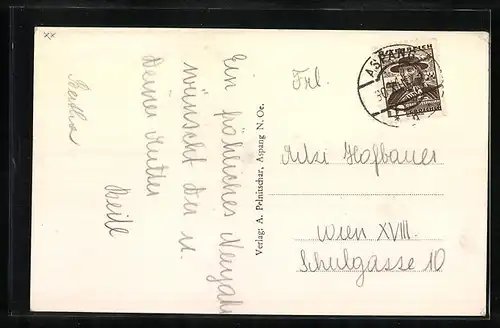 xx
Ein fröhliches Neujahr
wünscht Dir u.
Deiner Mutter
Bertha
Verlag: A. Pelnitschar, Aspang N. Oe.
ÖSTERREICH
ASPANG
Frl.
Mitzi Hofbauer
Wien XVIII.
Schulgasse 10